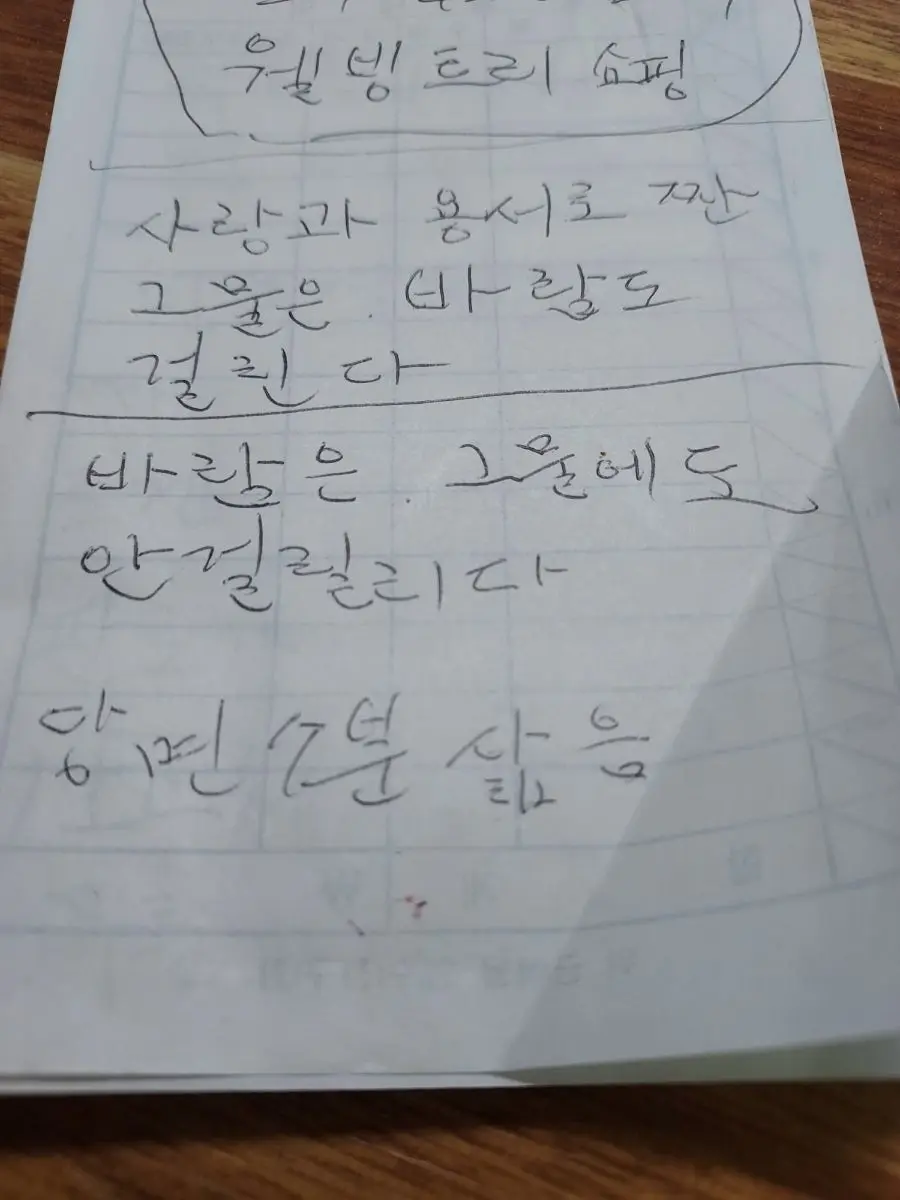 웰빙트리 쇼핑
사랑과 용서로 짠
그물은. 바람도
걸린다
바람은. 그물에도
안걸릴리다
당면 7분 삶음